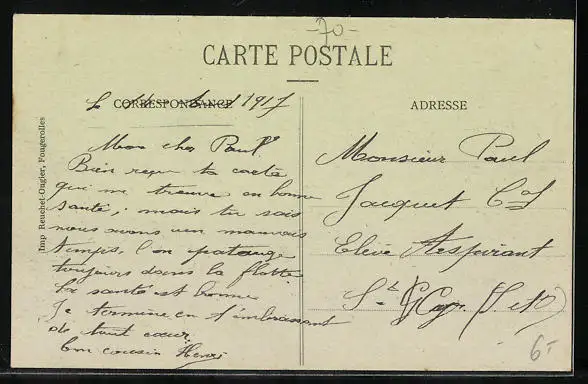 -70-
CARTE POSTALE
CORRESPONDANCE
ADRESSE
Le 1917
Mon cher Paul
Bien reçu ta carte
qui me trouve en bonne
santé; mais tu sais
nous avons un mauvais
temps, l'on patauge
toujours dans la flotte.
La santé est bonne
Je termine en t'embrassant
de tout cœur
ton cousin Henri
Monsieur Paul
Jacquet
Elève Aspirant
St Cyr (S. et O)
Imp Reuchet-Ougier, Fougerolles
6-